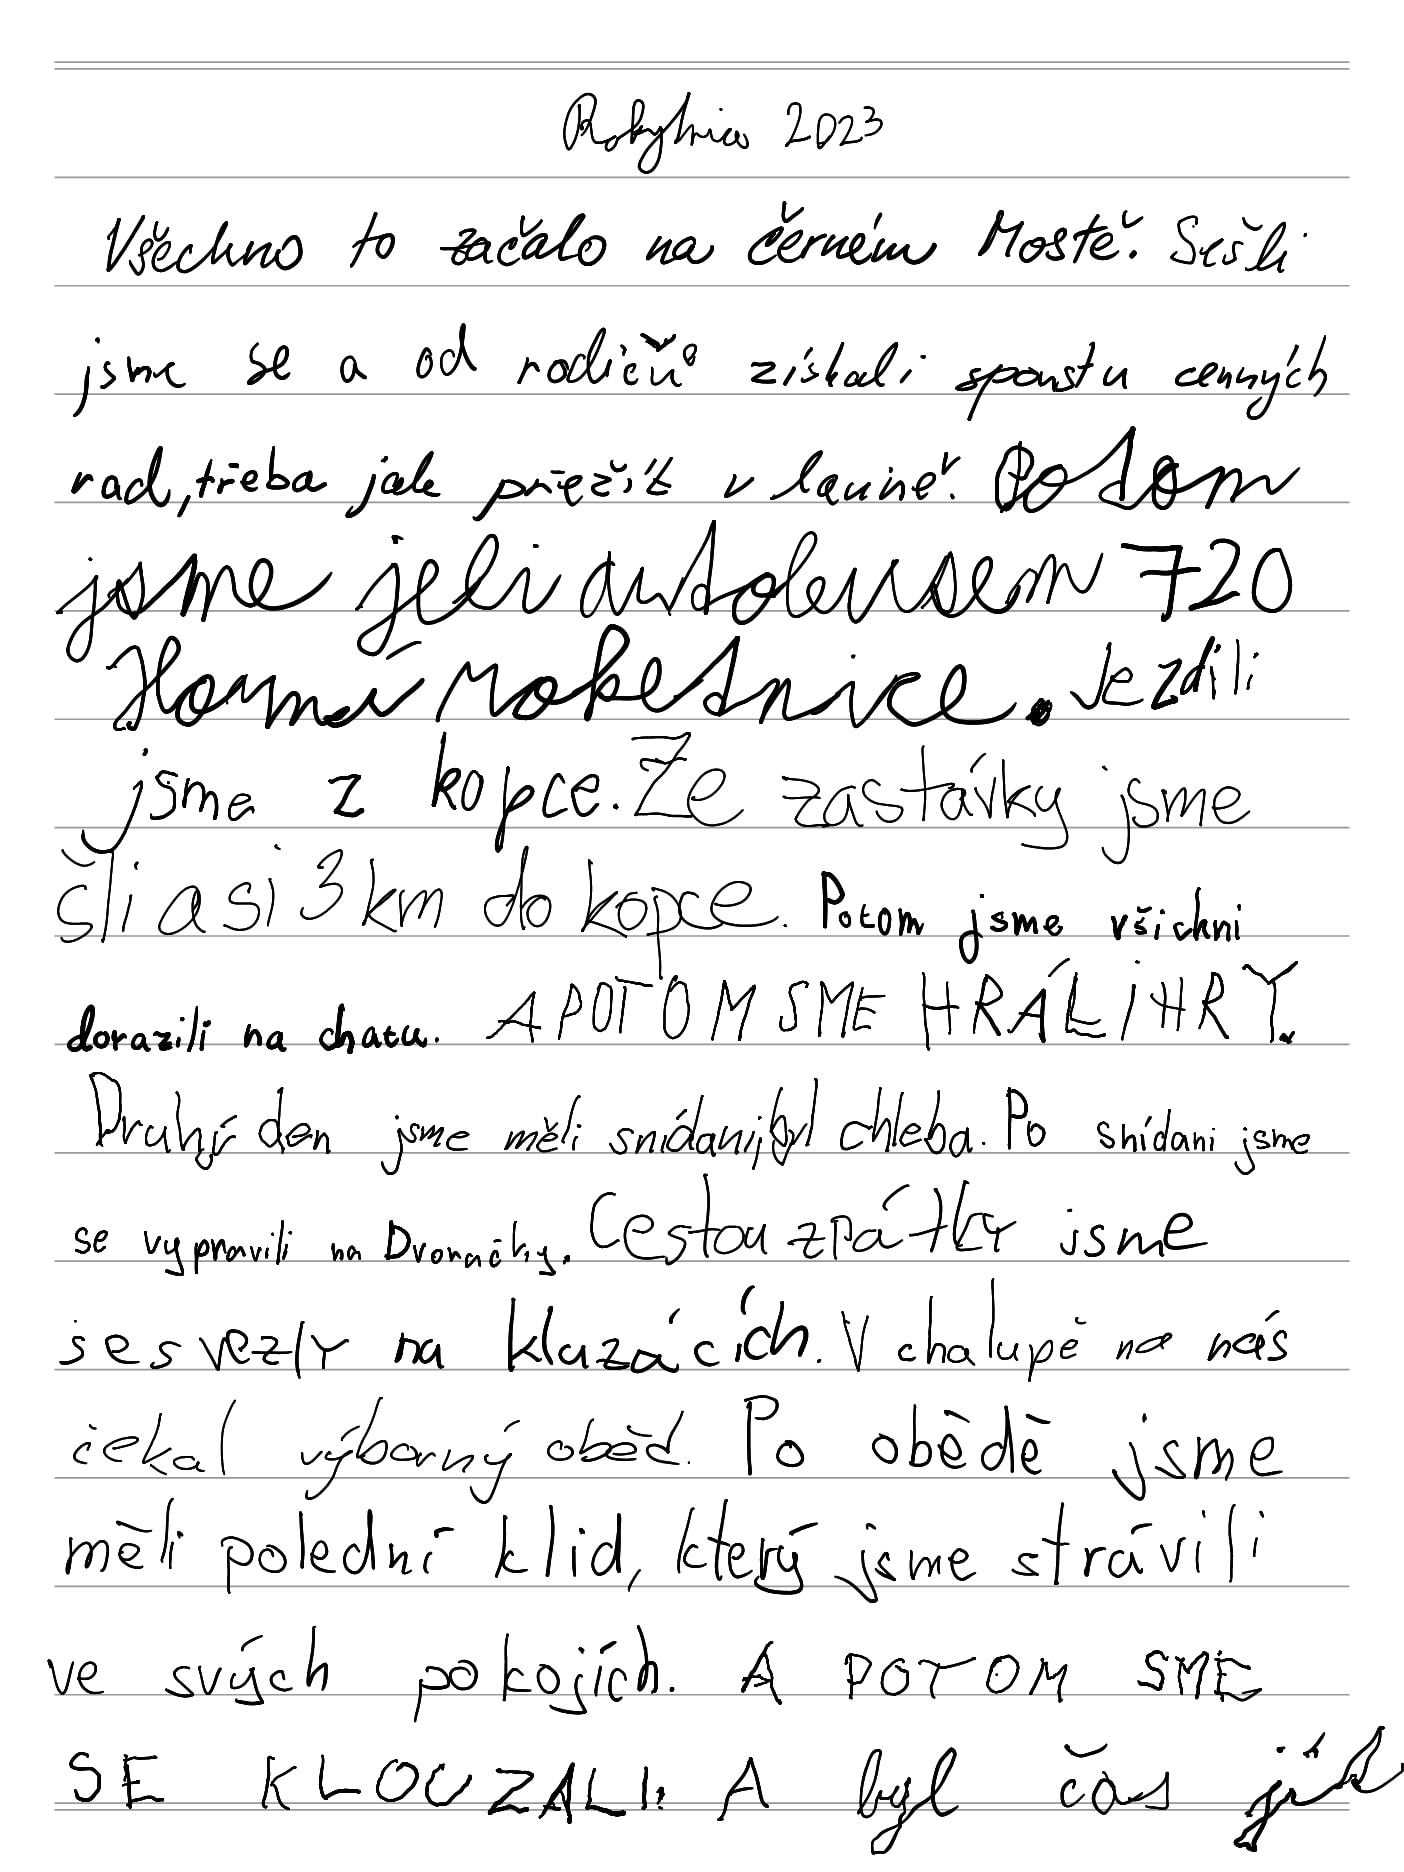 Rokytnice 2023
Všechno to začalo na černém Mostě. Sešli
jsme se a od rodičů získali spoustu cenných
rad, třeba jak přežít v lavině. Potom
jsme jeli autobusem 720
Horní roketnice. Jezdili
jsme z kopce. Ze zastávky jsme
šli asi 3 km do kopce. Potom jsme všichni
dorazili na chatu. A POTOM SME HRÁLI HRY.
Druhý den jsme měli snídani, byl chleba. Po snídani jsme
se vypravili na Dvoračky. Cestou zpátky jsme
se svezly na kluzácích. V chalupě na nás
čekal výborný oběd. Po obědě jsme
měli polední klid, který jsme strávili
ve svých pokojích. A POTOM SME
SE KLOUZALI. A byl čas jít